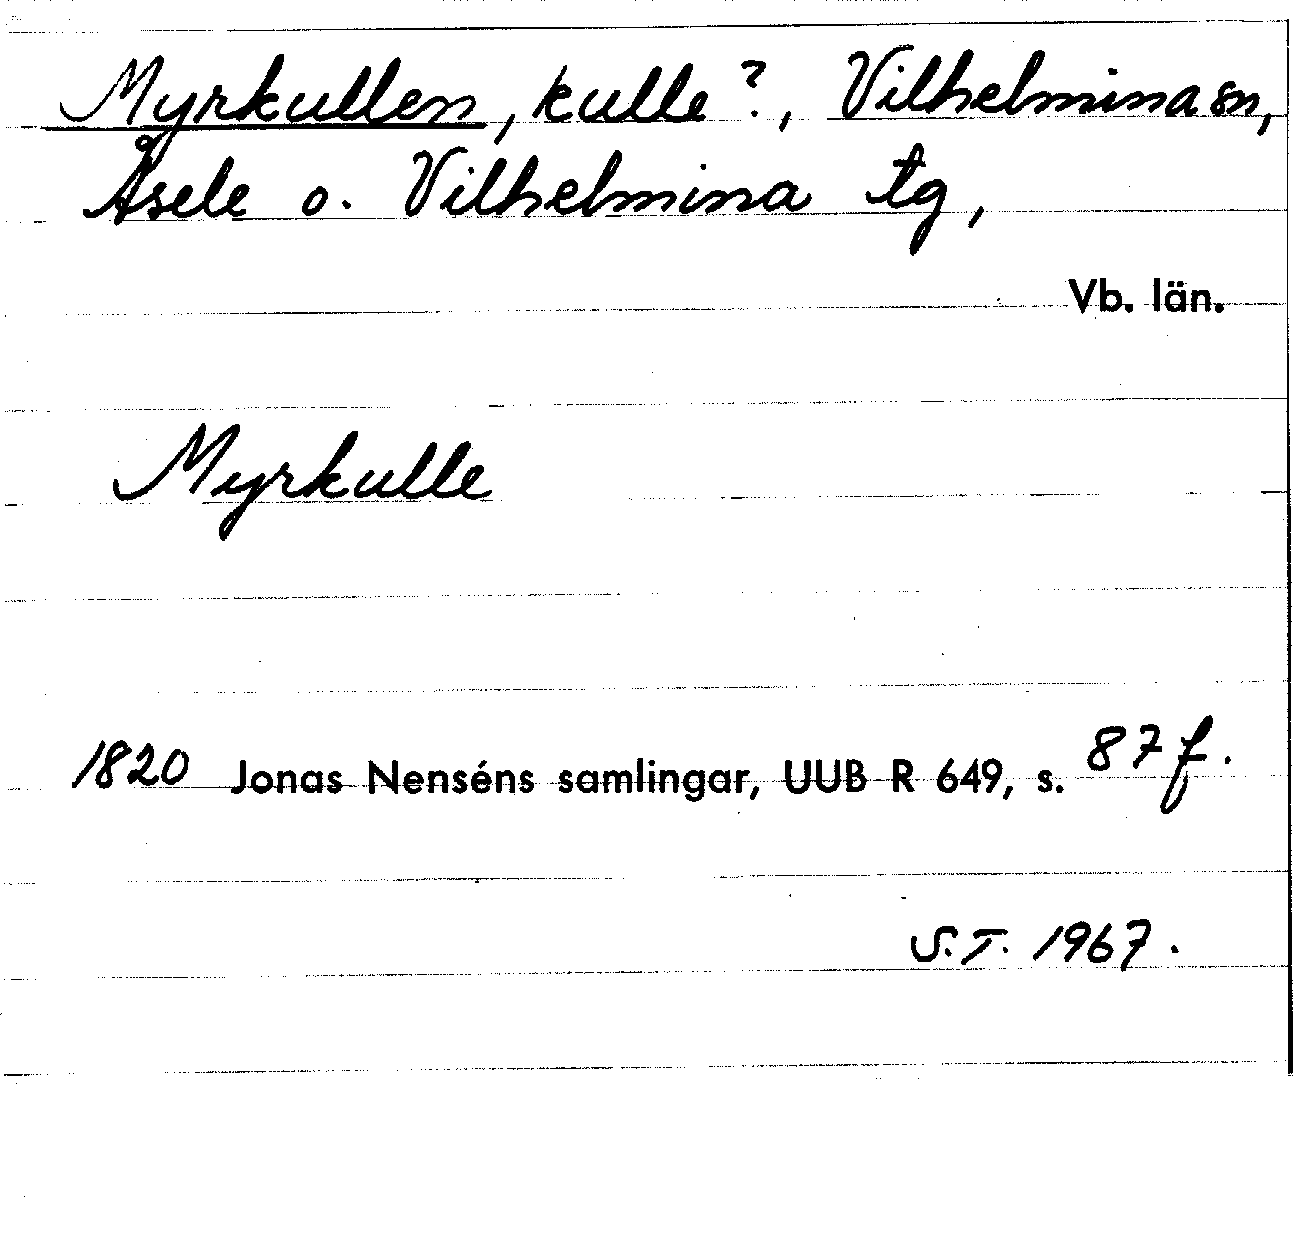 Myrkullen, kulle?, Vilhelmina sn,
Åsele o. Vilhelmina tg,
Vb. län.
Myrkulle
1820 Jonas Nenséns samlingar, UUB R 649, s. 87 f.
S.T. 1967.